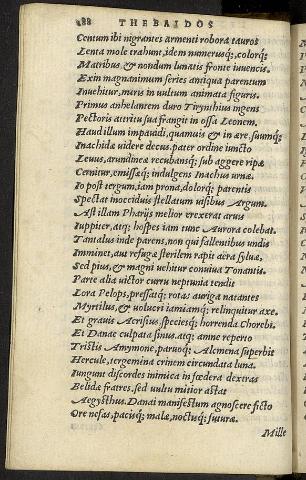 188 THEBAIDOS
Centum ibi nigrantes armenti robora tauros
Lenta mole trahunt, idem numerusq;, colorq;
Matribus & nondum lunatis fronte iuuencis.
Exin magnanimum series antiqua parentum
Inuehitur, miris in uultum animata figuris.
Primus anhelantem duro Tirynthius ingens
Pectoris attritu sua frangit in ossa Leonem.
Haud illum impauidi, quamuis & in ære, suumq;
Inachidæ uidere decus. pater ordine iuncto
Leuus, arundineæ recubansq; sub aggere ripæ
Cernitur, emissæq; indulgens Inachus urnæ.
Io post tergum, iam prona, dolorq; parentis
Spectat inocciduis stellatum uisibus Argum.
Ast illam Pharijs melior erexerat aruis
Iuppiter, atq; hospes iam tunc Aurora colebat.
Tantalus inde parens, non qui fallentibus undis
Imminet, aut refugæ sterilem rapit aëra syluæ,
Sed pius, & magni uehitur conuiua Tonantis.
Parte alia uictor curru neptunia tendit
Lora Pelops, pressatq; rotas auriga natantes
Myrtilus, & uolucri iamiamq; relinquitur axe.
Et grauis Acrisius, speciesq; horrenda Chorebi.
Et Danaë culpata sinus, atq; amne reperto
Tristis Amymone, paruoq; Alcmena superbit
Hercule, tergemina crinem circundata luna.
Iungunt discordes inimica in fœdera dextras
Belidæ fratres, sed uultu mitior astat
Aegysthus. Danai manifestum agnoscere ficto
Ore nefas, pacisq; malæ, noctisq; futuræ.
Mille